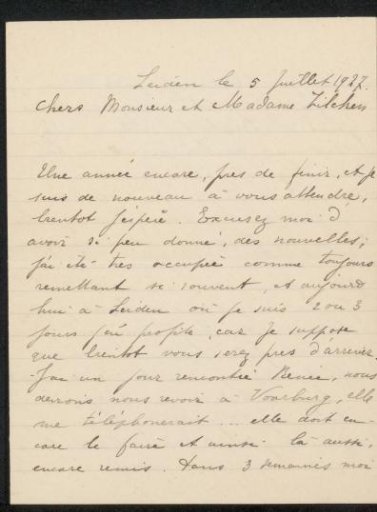 Leiden le 5 juillet 1927.
Chers Monsieur et Madame Zilcken
Une année encore, près de finir, et je
suis de nouveau à vous attendre,
bientot j'éspère. Excusez moi d
avoir si peu donné, des nouvelles;
j'ai été très occupée comme toujours
remettant si souvent, et aujourd
hui à Leiden où je suis 2 ou 3
jours j'en profite, car je suppose
que bientot vous serez près d'arriver.
J'ai un jour rencontré Renée, nous
devrions nous revoir à Voorburg, elle
me téléphonerait... elle doit en-
core le faire et ainsi là aussi,
encore remis. Dans 3 semaines moi